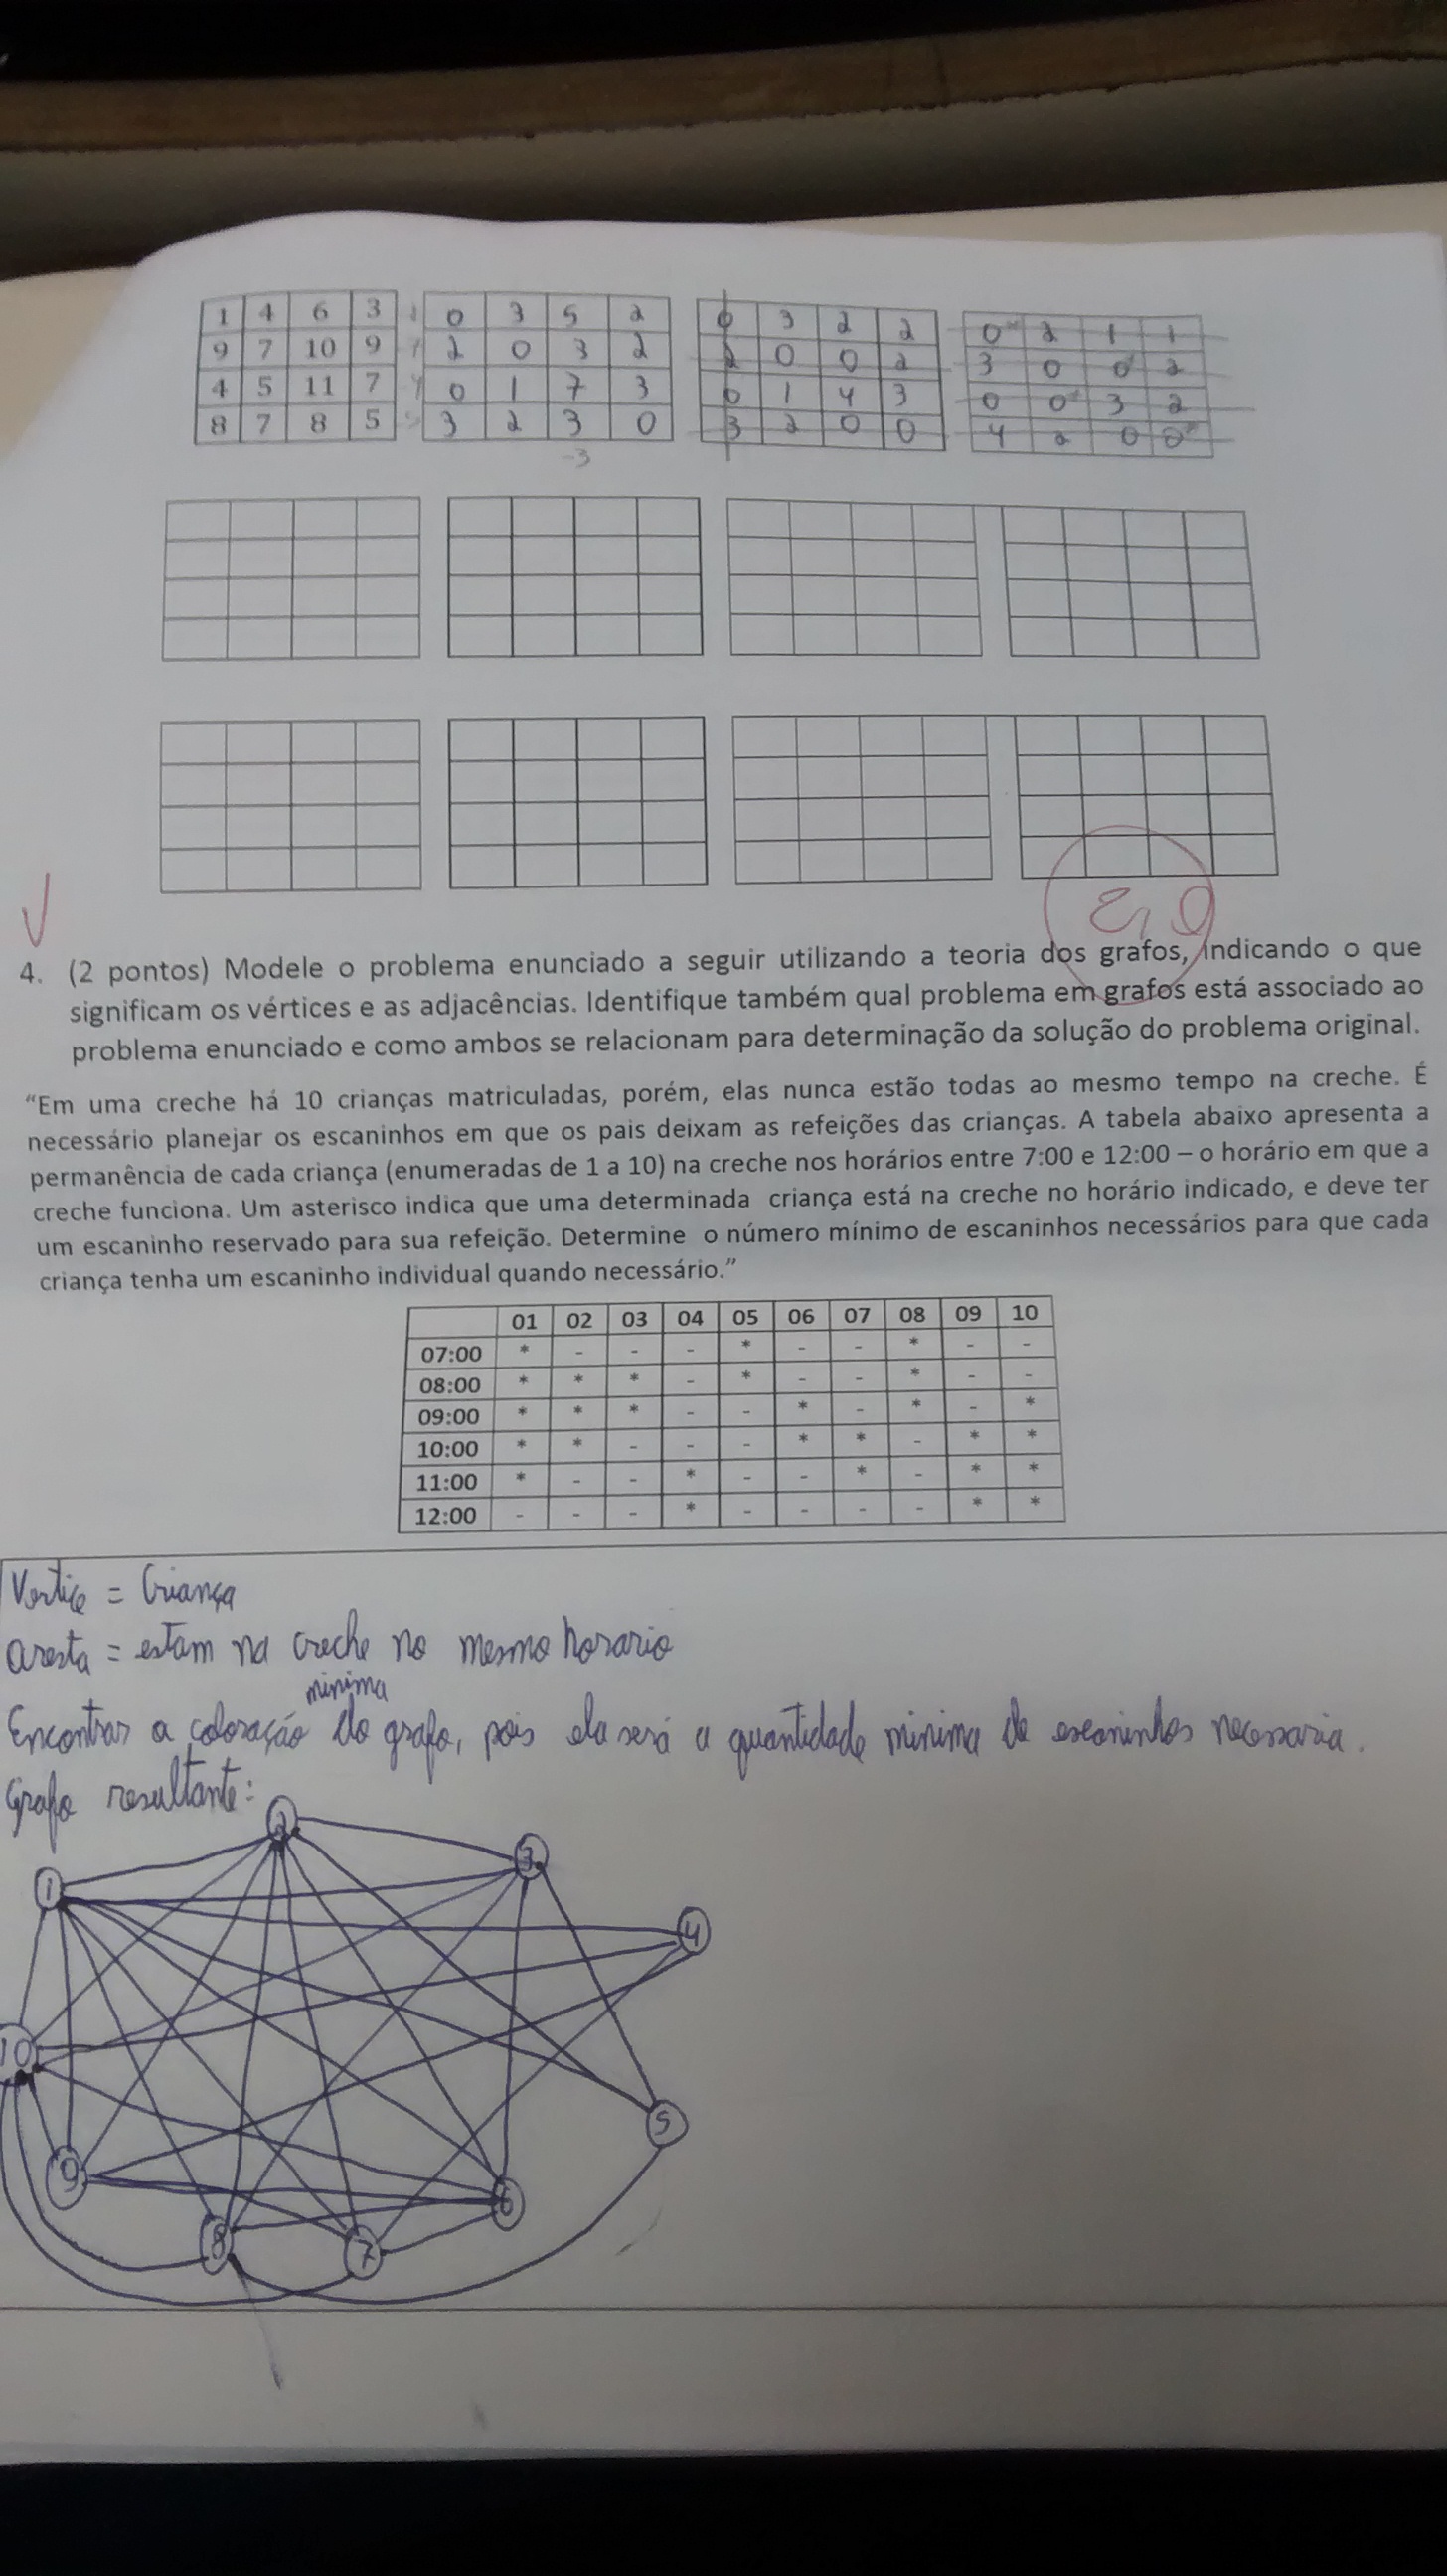 1 4 6 3 1 0 3 5 2 0 3 2 2 0* 2 1 1
9 7 10 9 7 2 0 3 2 2 0 0 2 3 0 0* 2
4 5 11 7 4 0 1 7 3 0 1 4 3 0 0* 3 2
8 7 8 5 5 3 2 3 0 3 2 0 0 4 2 0 0*
-3
2,0
4. (2 pontos) Modele o problema enunciado a seguir utilizando a teoria dos grafos, indicando o que
significam os vértices e as adjacências. Identifique também qual problema em grafos está associado ao
problema enunciado e como ambos se relacionam para determinação da solução do problema original.
“Em uma creche há 10 crianças matriculadas, porém, elas nunca estão todas ao mesmo tempo na creche. É
necessário planejar os escaninhos em que os pais deixam as refeições das crianças. A tabela abaixo apresenta a
permanência de cada criança (enumeradas de 1 a 10) na creche nos horários entre 7:00 e 12:00 – o horário em que a
creche funciona. Um asterisco indica que uma determinada criança está na creche no horário indicado, e deve ter
um escaninho reservado para sua refeição. Determine o número mínimo de escaninhos necessários para que cada
criança tenha um escaninho individual quando necessário.”
01 02 03 04 05 06 07 08 09 10
07:00 * - - - * - - * - -
08:00 * * * - * - - * - -
09:00 * * * - - * - * - *
10:00 * * - - - * * - * *
11:00 * - - * - - * - * *
12:00 - - - * - - - - * *
Vertice = Criança
aresta = estam na creche no mesmo horario
minima
Encontrar a coloração do grafo, pois ela será a quantidade minima de escaninhos necessaria.
Grafo resultante:
2
3
1
4
10
5
9
6
8
7